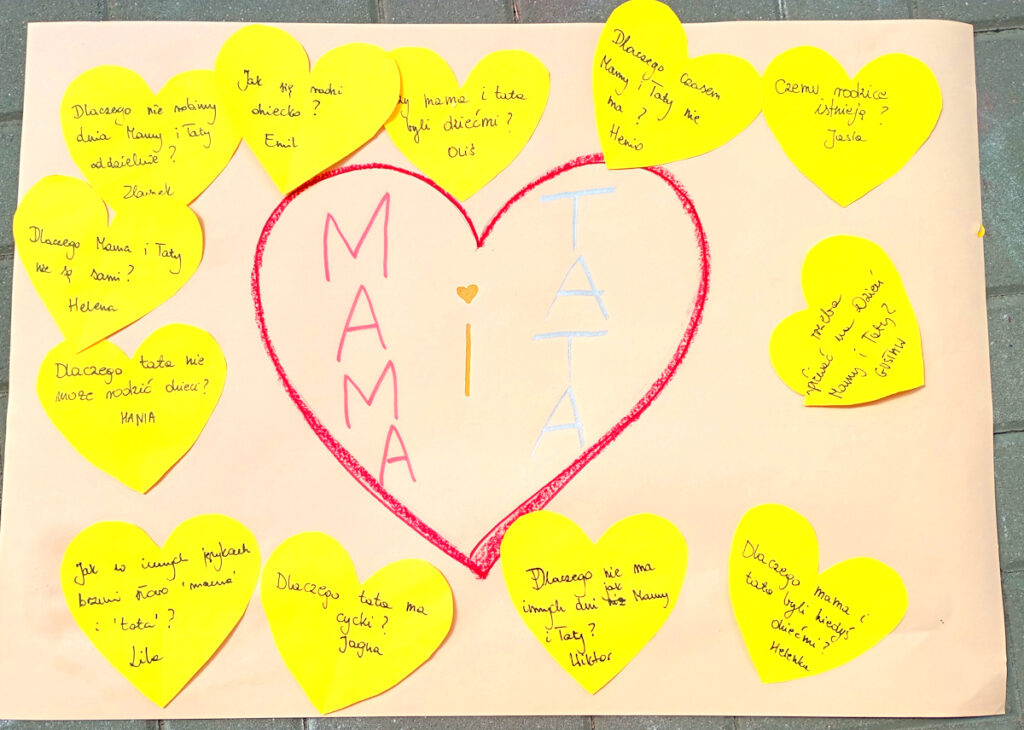 Dlaczego nie robimy
dnia Mamy i Taty
oddzielnie?
Jak się rodzi
dziecko?
Emil
mama i tata
byli dziećmi?
Oliś
Dlaczego czasem
Mamy i Taty nie
ma?
Henio
Czemu rodzice
istnieją?
Jasia
Dlaczego Mama i Taty
nie są sami?
Helena
MAMA
i
TATA
trzeba
śpiewać na Dzień
Mamy i Taty?
GUSTAW
Dlaczego tata nie
może rodzić dzieci?
HANIA
Jak w innych językach
brzmi słowo 'mama'
i 'tata'?
Lila
Dlaczego tata ma
cycki?
Jagna
Dlaczego nie ma
innych dni jak Mamy
i Taty?
Wiktor
Dlaczego mama i
tata byli kiedyś
dziećmi?
Helenka